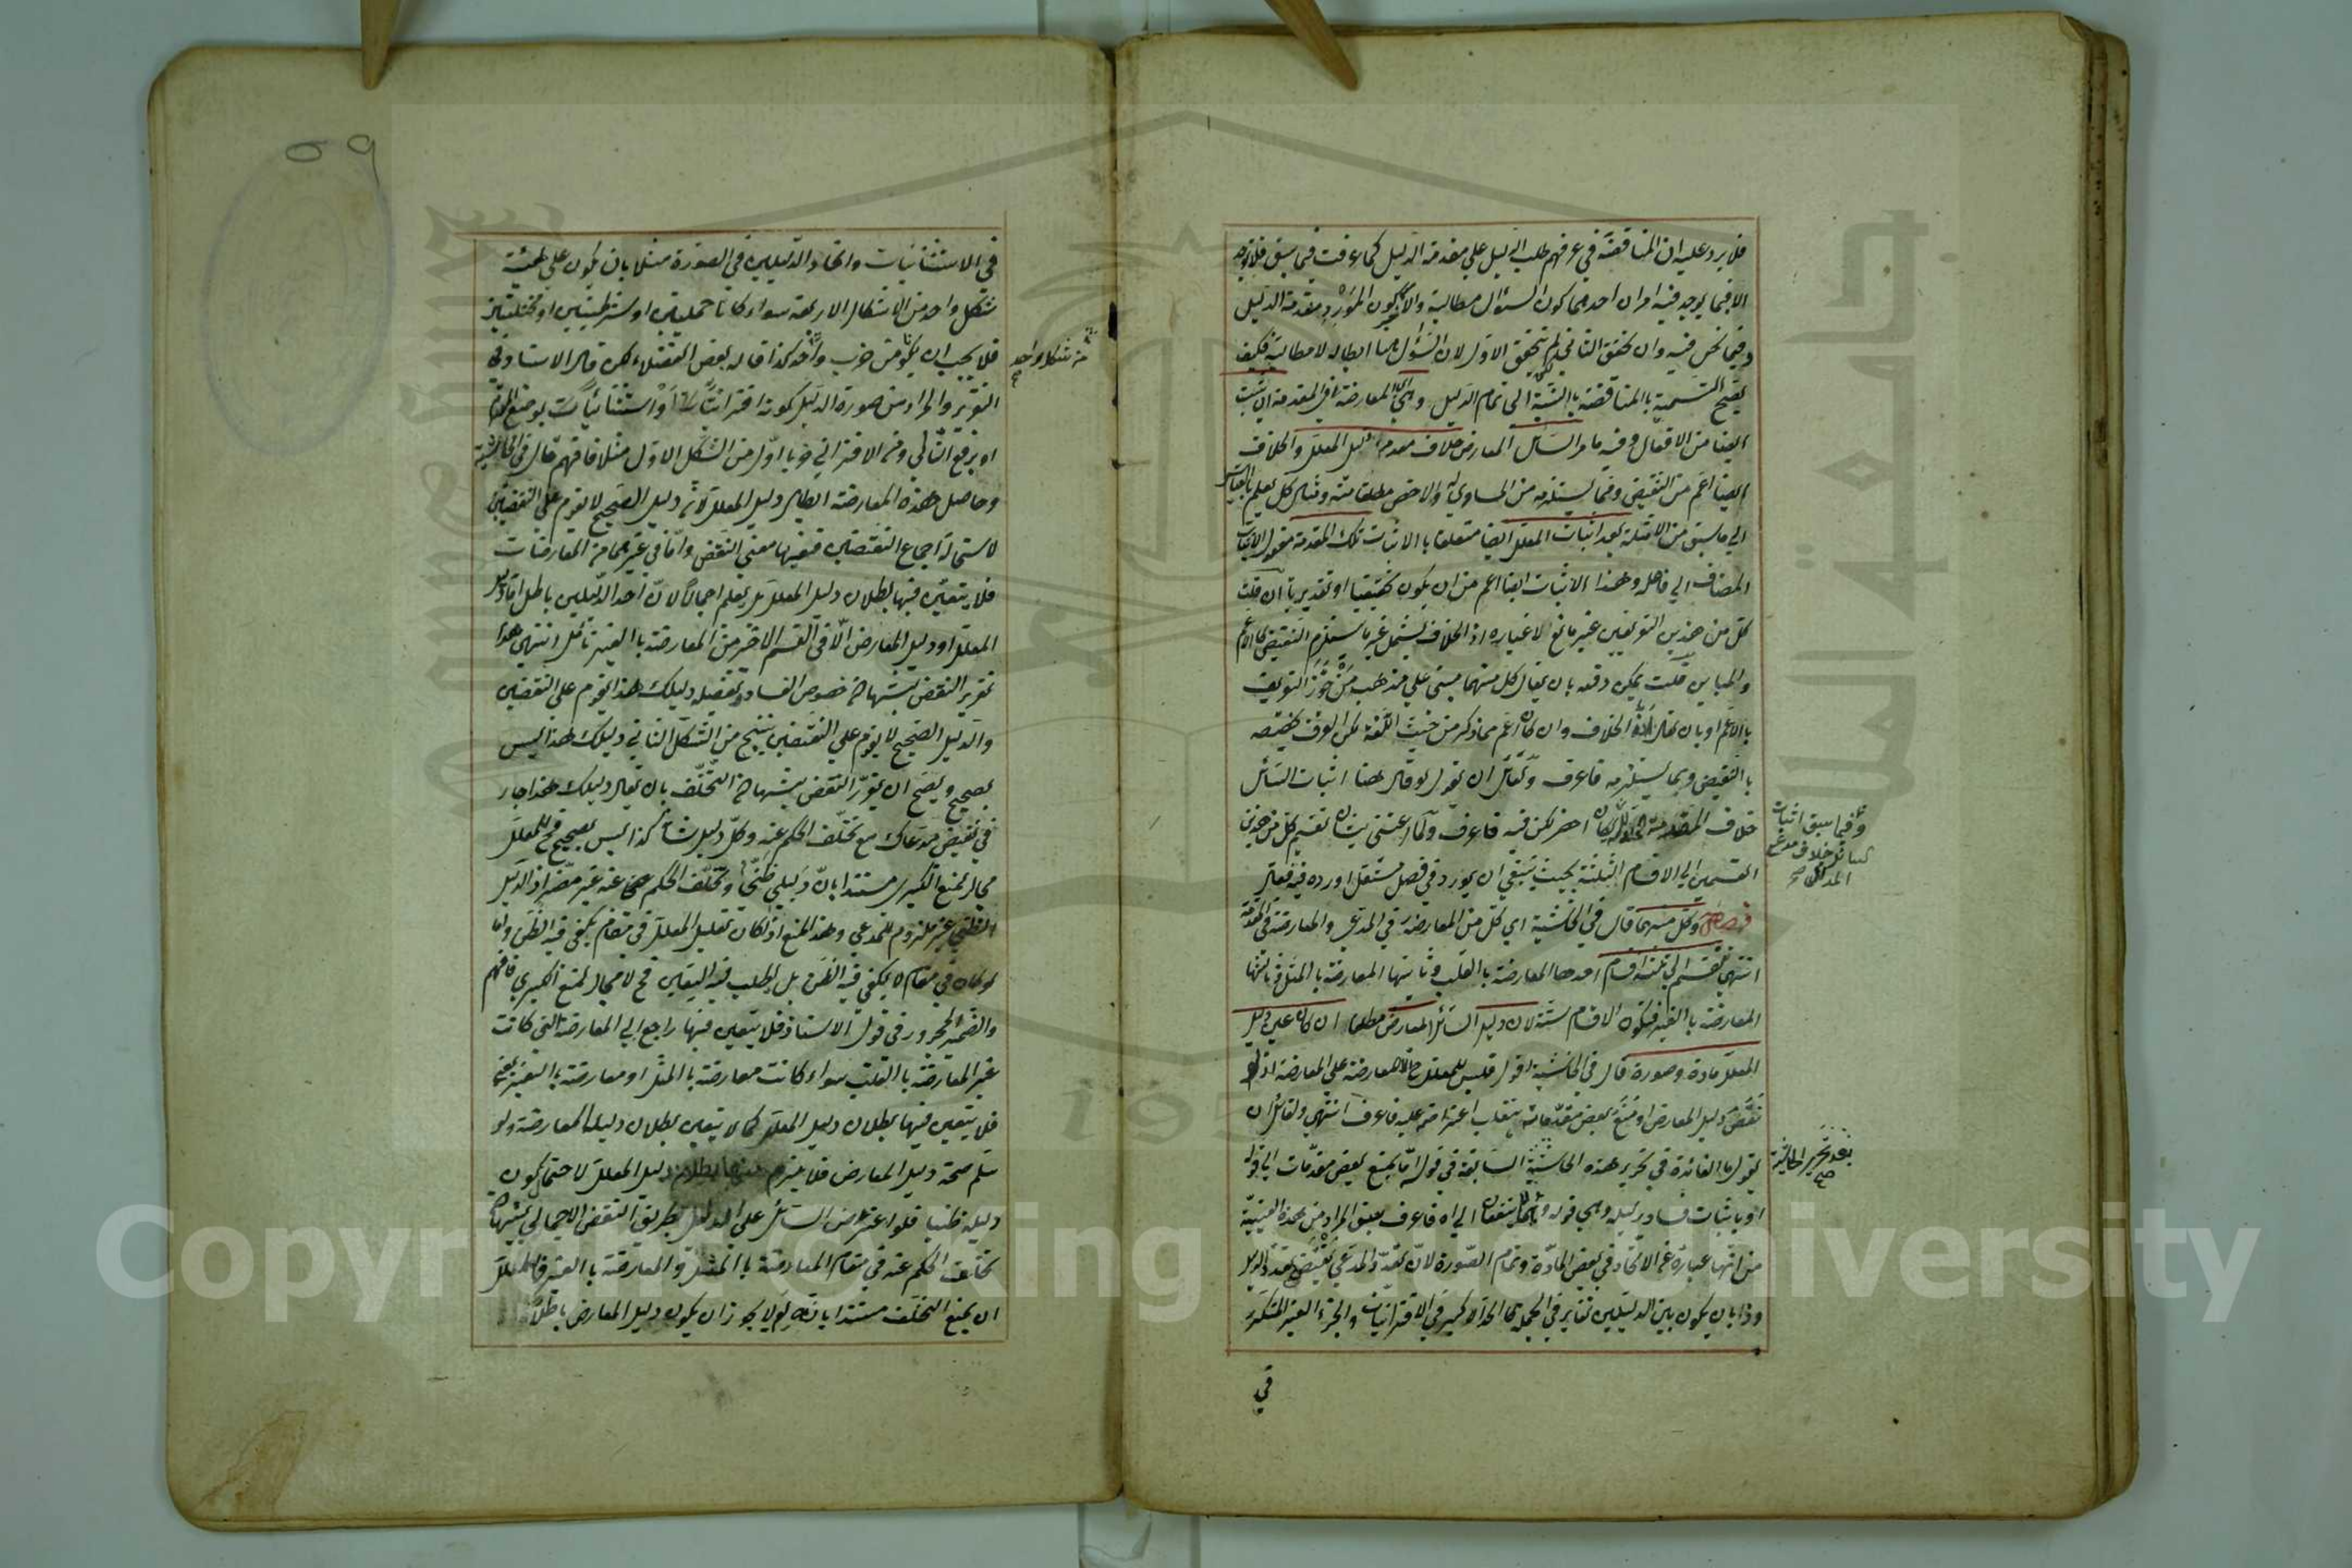 فلا يرد عليه ان المناقضة في عرفهم طلب الدليل علي مقدمة الدليل كما عرفت فيما سبق فلا توجد
الا فيما يوجد فيه امران احدهما كون السؤال مطالبة والاخر كون المورد مقدمة الدليل
وفيما نحن فيه وان تحقق الثاني لم يتحقق الاول لان السؤال ههنا ابطال لا مطالبة فكيف
يصح التسمية بالمناقضة بالنسبة الى تمام الدليل و المعارضة في المقدمة ان يثبت
ايضا من الافعال وفيه ما مر السائل المعارض خلاف مقدمة دليل المعلل والخلاف
ايضا اعم من النقيض وفيما يستلزمه من المساوي له والاخص مطلقا منه ومثال كل يعلم بالقياس
الي ما سبق من الامثلة بعد اثبات المعلل ايضا متعلق بالاثبات تلك المقدمة مفعول الاثبات
المضاف الي فاعله وهذا الاثبات ايضا اعم من ان يكون تحقيقيا او تقديريا ان قلت
كل من هذين التعريفين غير مانع لاغياره اذ الخلاف يشمل غير ما يستلزم النقيض كالاعم
والمباين قلت يمكن دفعه بان يقال كل منهما مبني علي مذهب من جوز التعريف
بالاعم او بان يقال الخلاف وان كان اعم مما ذكر من حيث اللغة لكن العرف يخصه
بالنقيض وبما يستلزمه فاعرف ولقائل ان يقول لو قال ههنا اثبات السائل
خلاف المقدمة لكان اخصر لكن فيه فاعرف ولما اعتنى بشان تقسيم كل من هذين
القسمين الي الاقسام الثلثة بحيث ينبغي ان يورد في فصل مستقل اورده فيه فقال
فصل وكل منهما قال في الحاشية اي كل من المعارضة في المدعي والمعارضة في المقدمة
انتهي تنقسم الي ثلثة اقسام احدها المعارضة بالقلب وثانيتها المعارضة بالمثل وثالثتها
المعارضة بالغير فيكون الاقسام ستة لان دليل السائل المعارض مطلقا ان كان عين دليل
المعلل مادة وصورة قال في الحاشية اقول فليس للمعلل المعارضة علي المعارضة اذ لو
نقض دليل المعارض او منع بعض مقدماته ينقلب اعتراضه عليه فاعرف انتهي ولقائل ان
يقول ما الفائدة في تحرير هذه الحاشية السابقة في قوله اما بمنع بعض مقدمات الي قوله
او باثبات فساد دليله وهي قوله الي اه فاعرف بعض المراد من هذه العينية
من انها عبارة عن الاتحاد في بعض المادة وتمام الصورة لان تعدد المدعي يقتضي تعدد الدليل
وذا بان يكون بين الدليلين تغاير في الجملة كالحد الاكبر في الاقترانيات والجزء الغير المتكرر
في
وفيما سبق اثبات
السائل خلاف مدعي
المدلل صح
بعد تحرير الحاشية
صح
في الاستثنائيات واتحاد الدليلين في الصورة مثلا بان يكون علي هيئة
شكل واحد من الاشكال الاربعة سواء كانا حمليتين او شرطيتين او مختلفتين
فلا يجب ان يكونا من ضرب واحد كذا قاله بعض الفضلاء لكن قال الاستاد في
التقرير والمراد من صورة الدليل كونه اقترانيا او استثنائيا بوضع المقدم
او برفع التالي ومن الاقتراني ضربا اول من الشكل الاول مثلا فافهم قال في الحاشية
وحاصل هذه المعارضة ابطال دليل المعلل لان دليل الصحيح لا يقوم علي النقيضين
لاستحالة اجماع النقيضين ففيها معني النقض واما في غيرهما من المعارضات
فلا يتعين فيها بطلان دليل المعلل بل يعلم اجمالا لان احد الدليلين باطل اما دليل
المعلل او دليل المعارض الا في القسم الاخير من المعارضة بالغير تأمل انتهي هذا
تقرير النقض بشهادة خصوص الفساد وتفصيله دليلك هذا يقوم علي النقيضين
والدليل الصحيح لا يقوم علي النقيضين ينتج من الشكل الثاني دليلك هذا ليس
بصحيح ويصح ان يقرر النقض بشهادة التخلف بان يقال دليلك هذا جار
في نقيض مدعاك مع تخلف الحكم عنه وكل دليل شانه كذا ليس بصحيح فح للمعلل
مجال لمنع الكبرى مستندا بان دليلي ظني وتخلف الحكم عنه غير مضر اذ الدليل
الظني غير ملزوم للمدعي وهذا المنع اذا كان تعليل المعلل في مقام يكفي فيه الظن واما
لو كان في مقام لا يكفي فيه الظن بل يطلب فيه اليقين فح لا مجال لمنع الكبرى فافهم
والضمير المجرور في قول الاستاذ فلا يتعين فيها راجع الي المعارضة التي كانت
غير المعارضة بالقلب سواء كانت معارضة بالمثل او معارضة بالغير يعني
فلا يتعين فيها بطلان دليل المعلل كما لا يتعين بطلان دليل المعارضة ولو
سلم صحة دليل المعارض فلا يلزم منها بطلان دليل المعلل لاحتمال كون
دليله ظنيا فلو اعترض السائل علي الدليل بطريق النقض الاجمالي بشهادة
تخلف الحكم عنه في مقام المعارضة بالمثل والمعارضة بالغير فللمعلل
ان يمنع التخلف مستندا بانه لم لا يجوز ان يكون دليل المعارض باطلا
من شكل واحد
صح